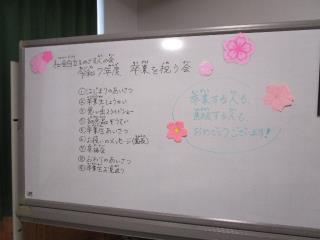 令和7年度 卒業を祝う会
①はじまりのあいさつ
②卒業生しょうかい
③思い出スライドショー
④記念品ぞうてい
⑤卒業生あいさつ
⑥お祝いのメッセージ
⑧おわりのあいさつ
⑨卒業生お見送り
卒業する人も、
進級する人も、
おめでとうございます!